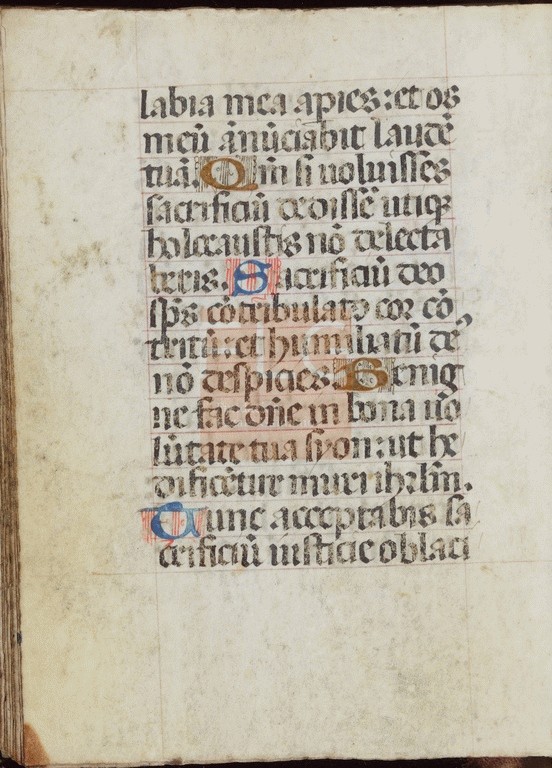 labia mea apies: et os
meū ānūciabit laudē
tuā. Qm̄ si uoluissēs
sacrificiū dedissē utiqꝫ
holocaustis nō delecta
beris. Sacrificiū deo
sp̄s cōtribulatꝰ cor cō
tritū: et humiliatū dē
nō despicies. Benig
ne fac dn̄e in bona uo
lūtate tua syon: ut he
dificētur muri ihrl̄m.
Tunc acceptabis sa
crificiū iusticie oblaci